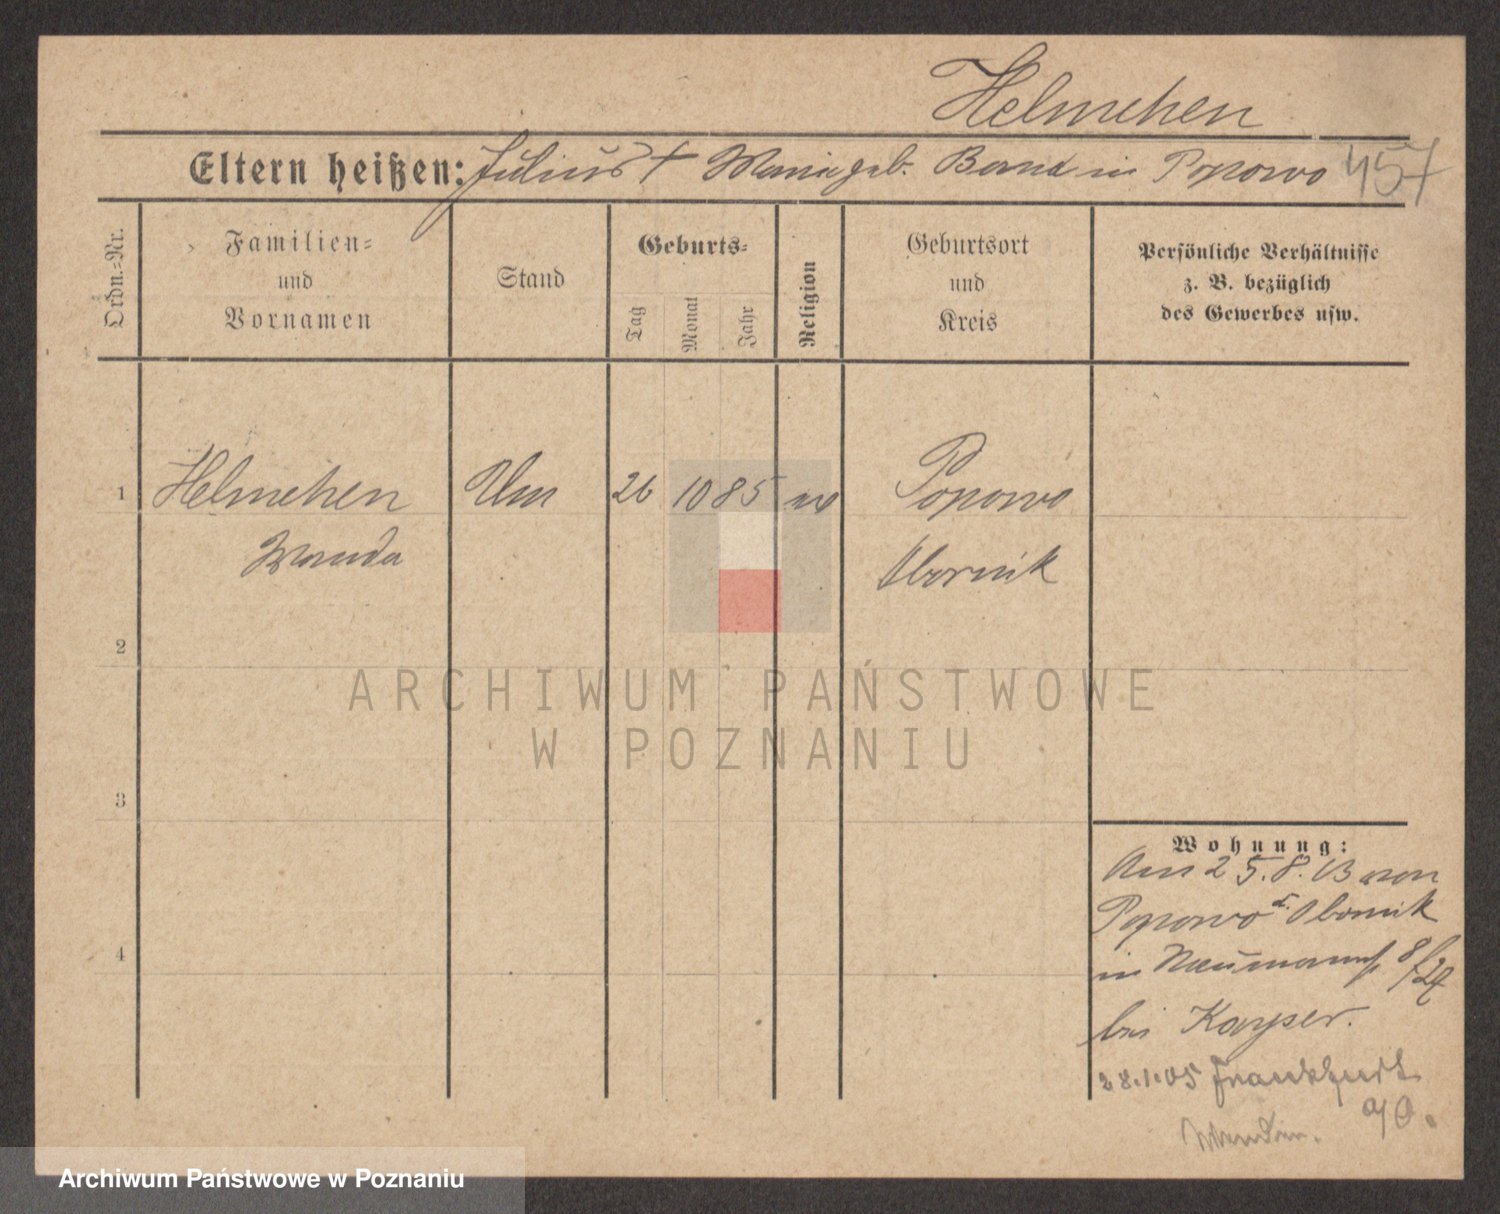 Helmchen
Eltern heißen: Julius † Maria geb. Bernd in Popowo 457
Ordn.-Nr.
Familien- und Vornamen
Stand
Geburts-
Tag
Monat
Jahr
Religion
Geburtsort und Kreis
Persönliche Verhältnisse
z. B. bezüglich
des Gewerbes usw.
1 Helmchen 26 10 85 Popowo
Wanda Obornik
2
ARCHIWUM PAŃSTWOWE
W POZNANIU
3
Wohnung:
Am 25.8. von
Popowo Obornik
in 8/24
bei Kayser.
28.1.05 Frankfurt
a/O.
4
Archiwum Państwowe w Poznaniu